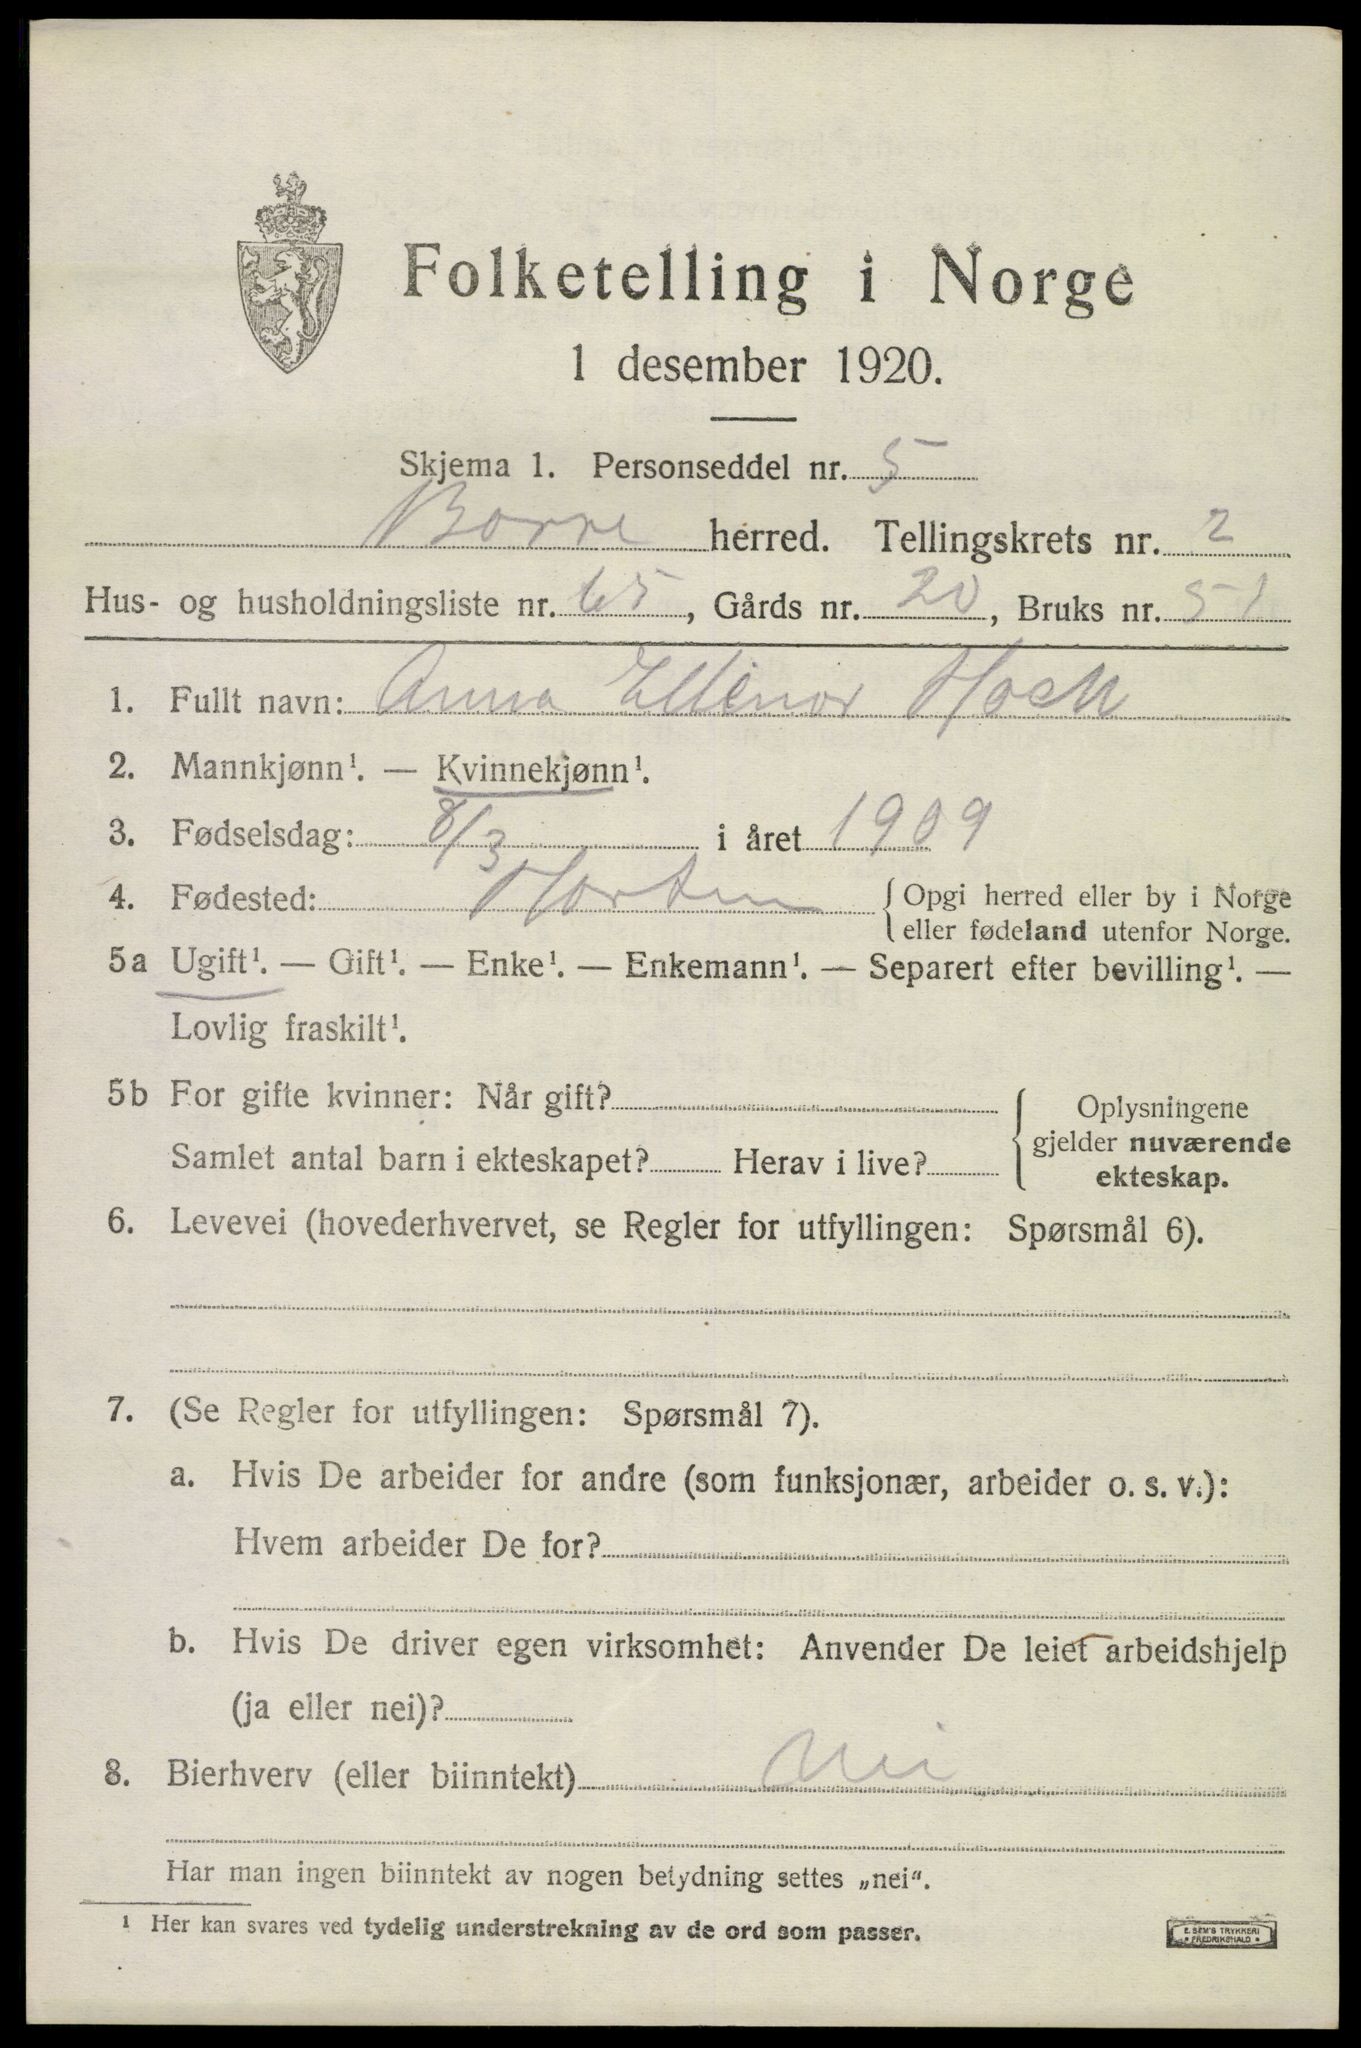 Folketelling i Norge
1 desember 1920.
Skjema 1. Personseddel nr. 5
Borre herred. Tellingskrets nr. 2
Hus- og husholdningsliste nr. 65, Gårds nr. 20, Bruks nr. 51
1. Fullt navn: Anna Ellinor
2. Mannkjønn¹. — Kvinnekjønn¹.
3. Fødselsdag: 8/3 i året 1909
4. Fødested: Horten { Opgi herred eller by i Norge
eller fødeland utenfor Norge.
5a Ugift¹. — Gift¹. — Enke¹. — Enkemann¹. — Separert efter bevilling¹. —
Lovlig fraskilt¹.
5b For gifte kvinner: Når gift?
Samlet antal barn i ekteskapet? Herav i live?
{ Oplysningene
gjelder nuværende
ekteskap.
6. Levevei (hovederhvervet, se Regler for utfyllingen: Spørsmål 6).
7. (Se Regler for utfyllingen: Spørsmål 7).
a. Hvis De arbeider for andre (som funksjonær, arbeider o. s. v.):
Hvem arbeider De for?
b. Hvis De driver egen virksomhet: Anvender De leiet arbeidshjelp
(ja eller nei)?
8. Bierhverv (eller biinntekt) Nei
Har man ingen biinntekt av nogen betydning settes „nei“.
¹ Her kan svares ved tydelig understrekning av de ord som passer.
E. SEM'S TRYKKERI
FREDRIKSHALD